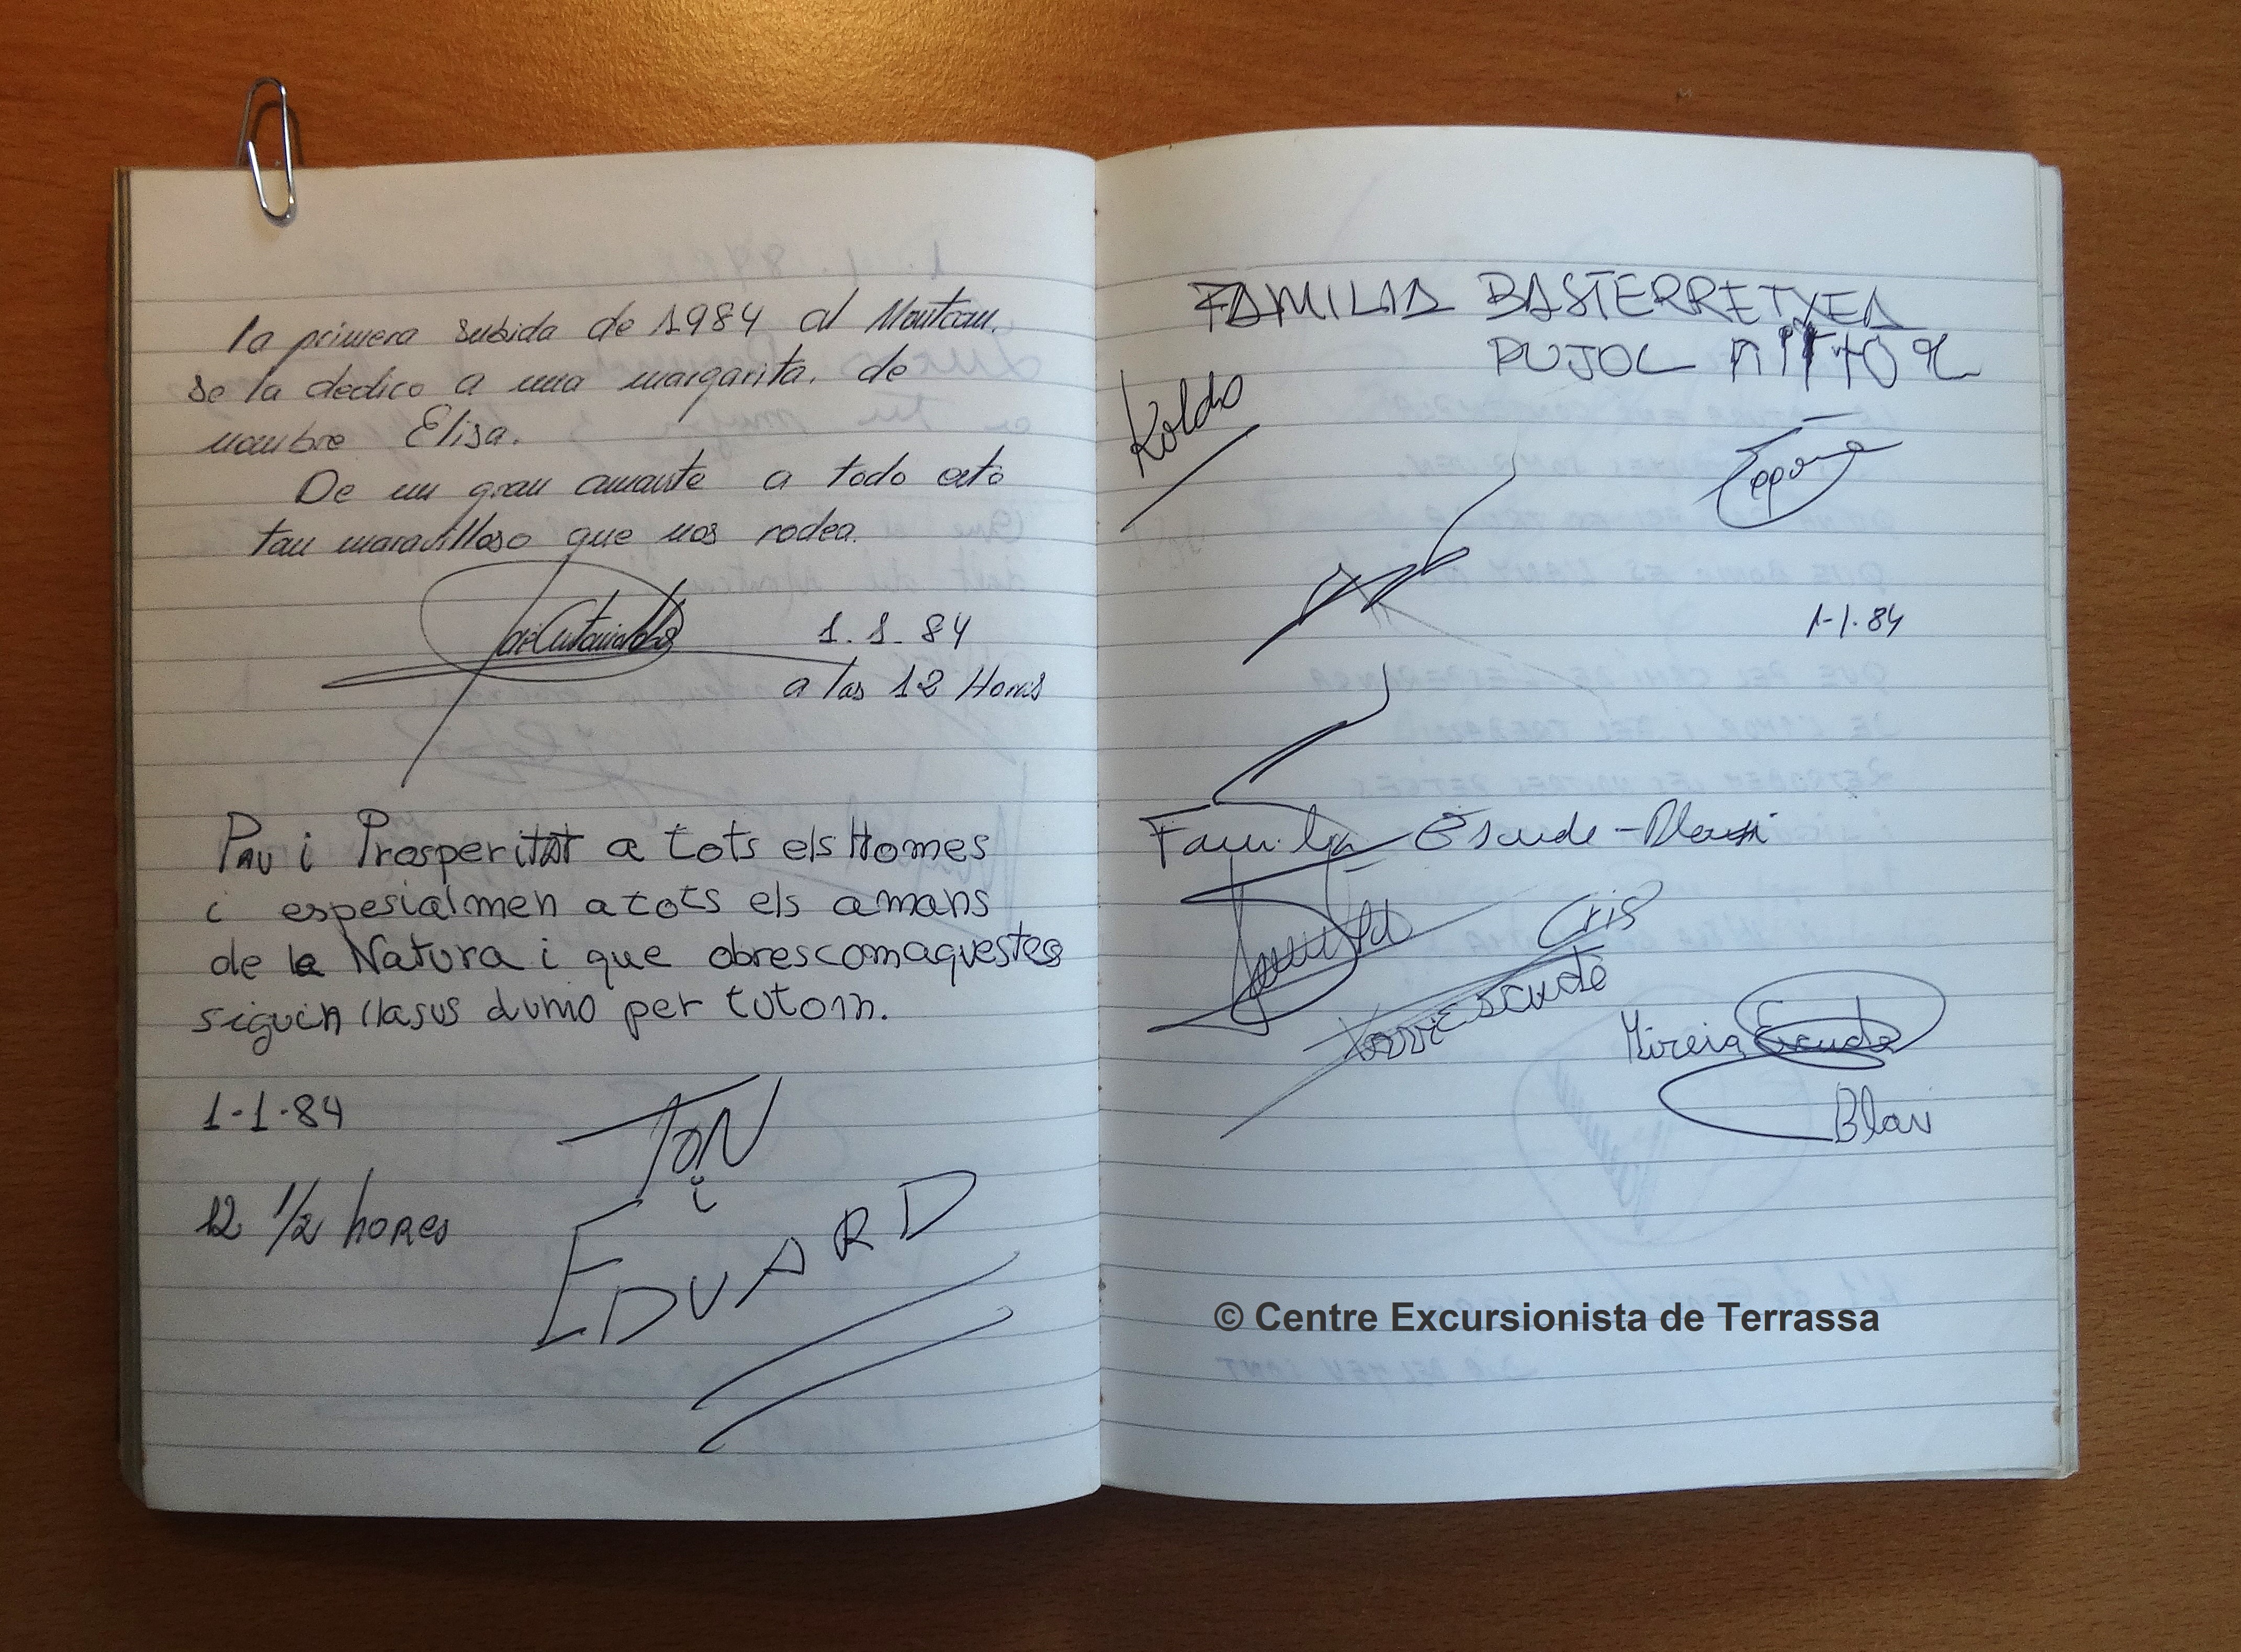 la primera subida de 1984 al Montcau.
se la dedico a una margarita. de
nombre Elisa.
De un gran amante a todo esto
tan maravilloso que nos rodea.
1.1.84
a las 12 Horas
Pau i Prosperitat a tots els Homes
i espesialmen a tots els amans
de la Natura i que obrescomaquestes
siguin llasus dumo per totom.
1-1-84
TONI
i
12 1/2 hores
EDUARD
FAMILIA BASTERRETXEA
PUJOL
Koldo
1-1-84
Familia Escude-
Cris
Xavi Escudé
Mireia Escude
Blavi
© Centre Excursionista de Terrassa